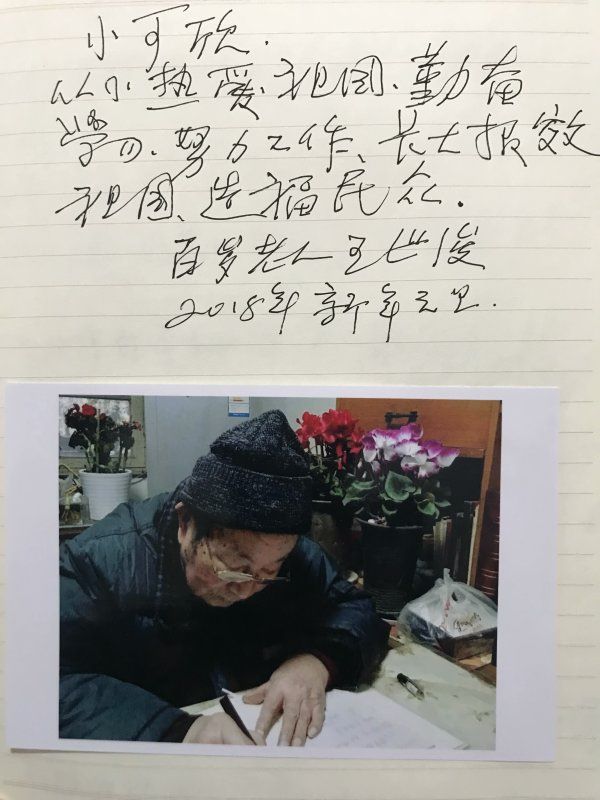 小可欣.
从小热爱祖国、勤奋
學习、努力工作、长大报效
祖国、造福民众.
百岁老人王世俊
2018年新年元旦.